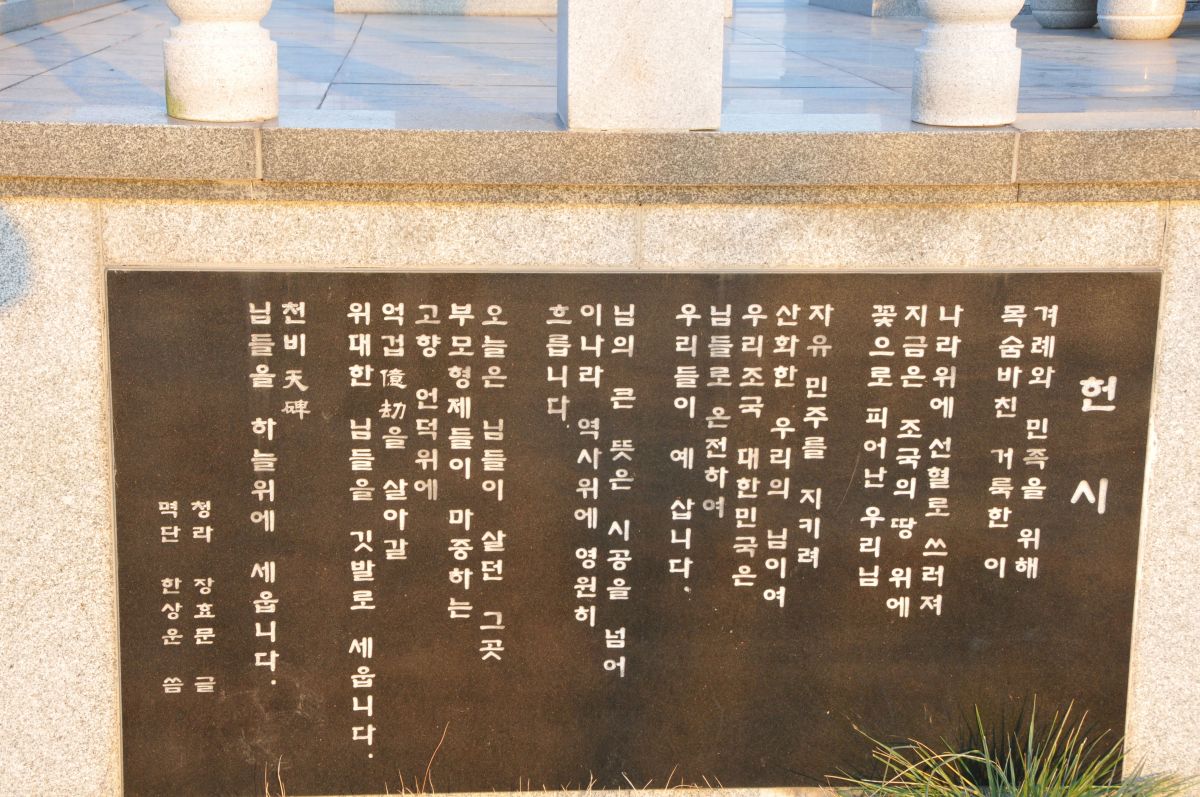 헌시
겨레와 민족을 위해
목숨바친 거룩한 이
나라위에 선혈로 쓰러져
지금은 조국의 땅 위에
꽃으로 피어난 우리님
자유 민주를 지키려
산화한 우리의 님이여
우리조국 대한민국은
님들로 온전하여
우리들이 예 삽니다.
님의 큰 뜻은 시공을 넘어
이나라 역사위에 영원히
흐릅니다.
오늘은 님들이 살던 그곳
부모형제들이 마중하는
고향 언덕위에
억겁億劫을 살아갈
위대한 님들을 깃발로 세웁니다.
천비天碑
님들을 하늘위에 세웁니다.
청라 장효문 글
멱단 한상운 씀